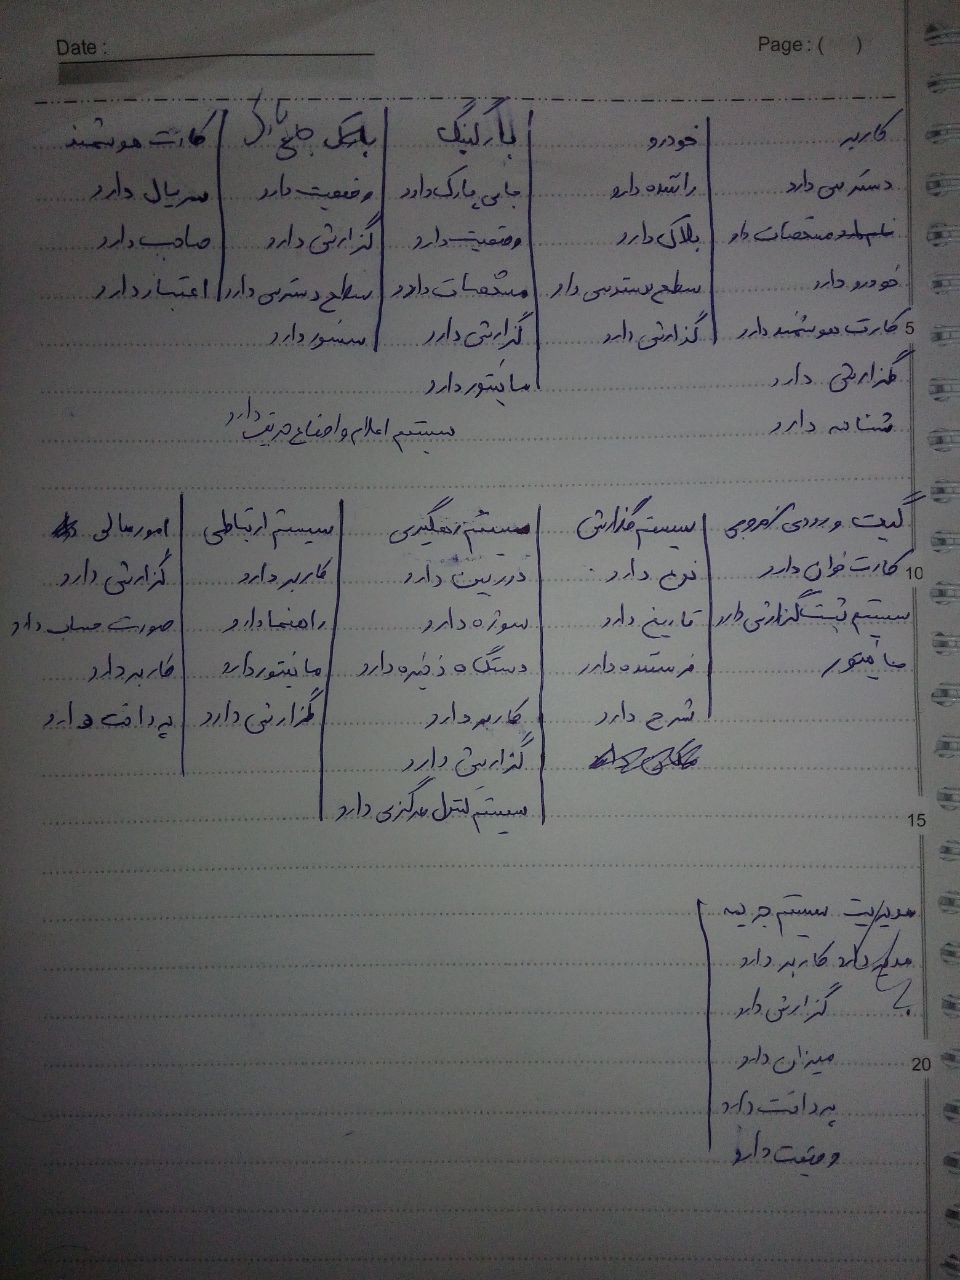 Date :
Page : ( )
کاربر
دسترسی دارد
مشخصات دارد
خودرو دارد
کارت هوشمند دارد
گزارش دارد
شناسه دارد
خودرو
راننده دارد
پلاک دارد
سطح دسترسی دارد
گزارش دارد
پارکینگ
جای پارک دارد
وضعیت دارد
مشخصات دارد
گزارش دارد
مانیتور دارد
سیستم اعلام و اطفاع حریق دارد
جای پارک
وضعیت دارد
گزارش دارد
سطح دسترسی دارد
سنسور دارد
کارت هوشمند
سریال دارد
صاحب دارد
اعتبار دارد
5
گیت ورودی خروجی
کارت خوان دارد
سیستم ثبت گزارش دارد
مانیتور
سیستم گزارش
نوع دارد
تاریخ دارد
فرستنده دارد
شرح دارد
سیستم رهگیری
دوربین دارد
سوژه دارد
دستگاه ذخیره دارد
کاربر دارد
گزارش دارد
سیستم کنترل مرکزی دارد
سیستم ارتباطی
کاربر دارد
راهنما دارد
مانیتور دارد
گزارش دارد
امور مالی
گزارش دارد
صورت حساب دارد
کاربر دارد
پرداخت دارد
10
15
مدیریت سیستم جریمه
کاربر دارد
گزارش دارد
میزان دارد
پرداخت دارد
وضعیت دارد
20